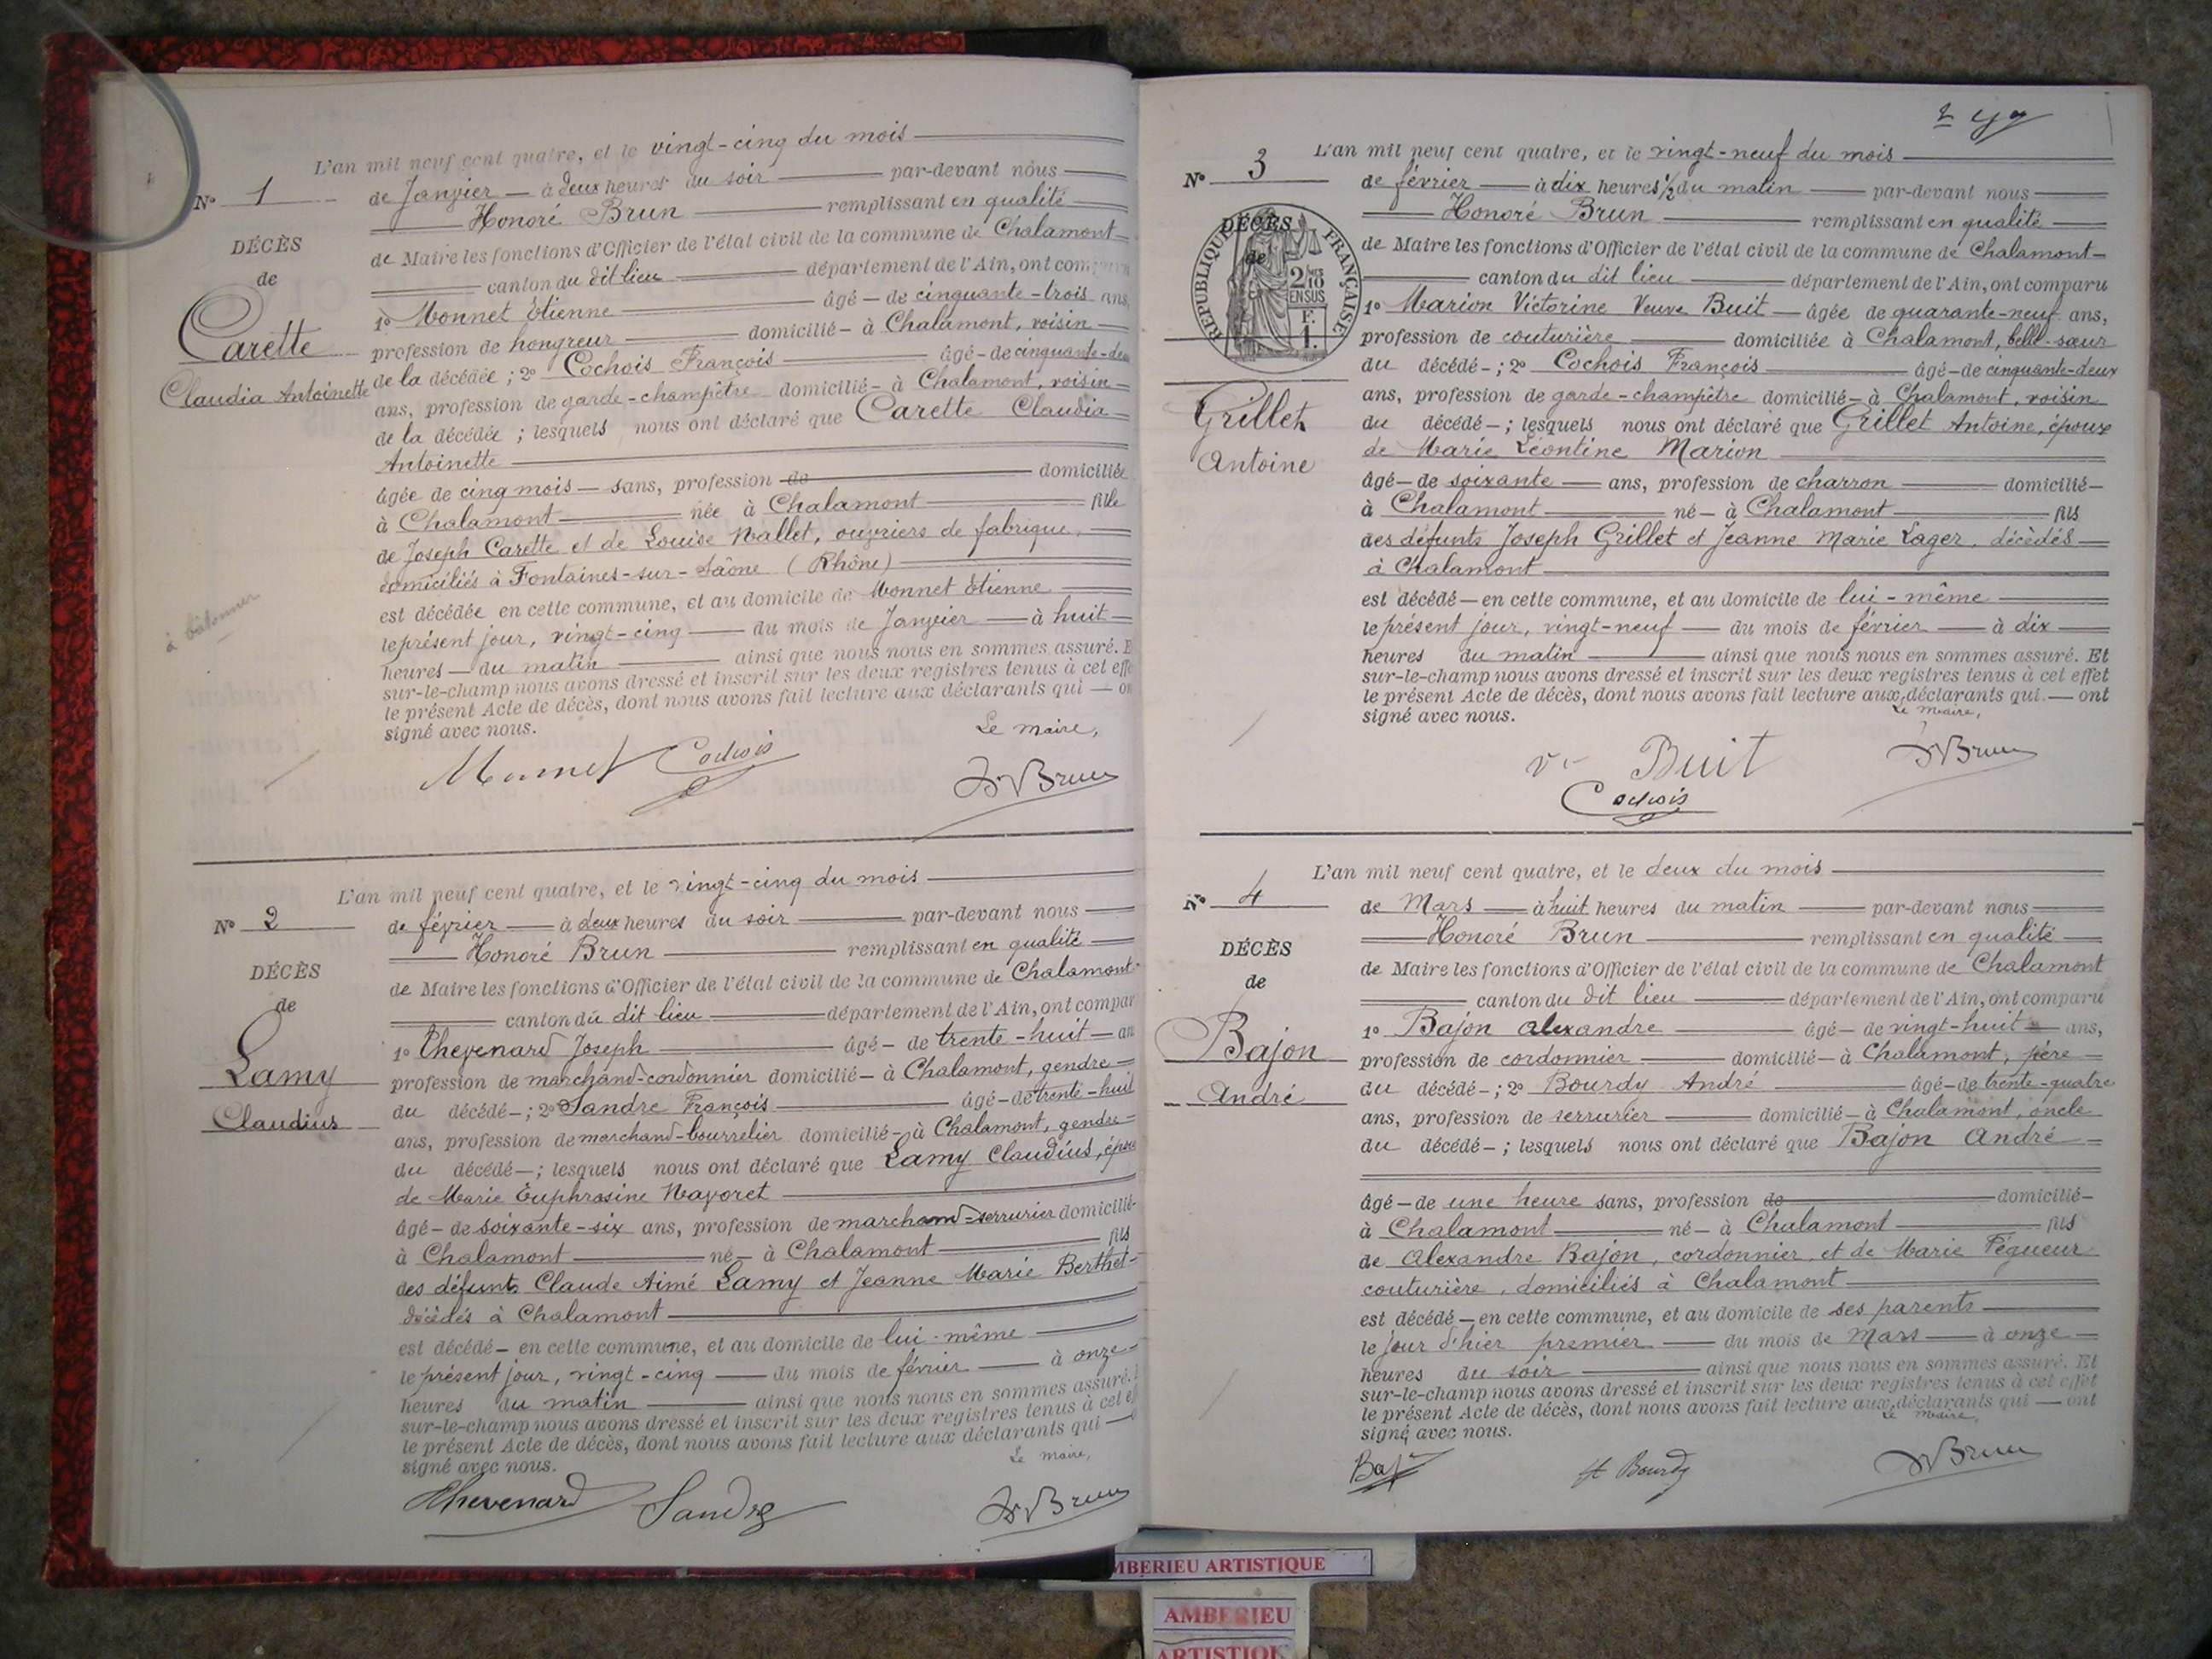 L'an mil neuf cent quatre, et le vingt-cinq du mois
N° 1
de Janvier — à deux heures du soir — par-devant nous
Honoré Brun — remplissant en qualité
DÉCÈS
de Maire les fonctions d'Officier de l'état civil de la commune de Chalamont
de
canton du dit lieu — département de l'Ain, ont comparu
1° Monnet Etienne — âgé — de cinquante-trois ans,
Carette
profession de hongreur — domicilié — à Chalamont, voisin
Claudia Antoinette
de la décédée ; 2° Cochois François — âgé — de cinquante-deux
ans, profession de garde-champêtre domicilié — à Chalamont, voisin
de la décédée ; lesquels nous ont déclaré que Carette Claudia
Antoinette
âgée de cinq mois — sans, profession de — domiciliée
à Chalamont — née à Chalamont — fille
de Joseph Carette et de Louise Mallet, ouvriers de fabrique,
domiciliés à Fontaines-sur-Saône (Rhône)
est décédée en cette commune, et au domicile de Monnet Etienne
le présent jour, vingt-cinq — du mois de Janvier — à huit
heures — du matin — ainsi que nous nous en sommes assuré. E
sur-le-champ nous avons dressé et inscrit sur les deux registres tenus à cet effe
le présent Acte de décès, dont nous avons fait lecture aux déclarants qui — on
signé avec nous.
Le maire,
Monnet Cochois
Hr Brun
L'an mil neuf cent quatre, et le vingt-cinq du mois
N° 2
de février — à deux heures du soir — par-devant nous
Honoré Brun — remplissant en qualité
DÉCÈS
de Maire les fonctions d'Officier de l'état civil de la commune de Chalamont
de
canton du dit lieu — département de l'Ain, ont compar
1° Chevenard Joseph — âgé — de trente-huit — an
Lamy
profession de marchand-cordonnier domicilié — à Chalamont, gendre
Claudius
du décédé — ; 2° Sandre François — âgé — de trente-huit
ans, profession de marchand-bourrelier domicilié — à Chalamont, gendre
du décédé — ; lesquels nous ont déclaré que Lamy Claudius, époux
de Marie Euphrasine Mayoret
âgé — de soixante-six ans, profession de marchand-serrurier domicilié
à Chalamont — né — à Chalamont — fils
des défunts Claude Aimé Lamy et Jeanne Marie Berthet
décédés à Chalamont
est décédé — en cette commune, et au domicile de lui-même
le présent jour, vingt-cinq — du mois de février — à onze
heures du matin — ainsi que nous nous en sommes assuré.
sur-le-champ nous avons dressé et inscrit sur les deux registres tenus à cet e
le présent Acte de décès, dont nous avons fait lecture aux déclarants qui —
signé avec nous.
Le maire,
Chevenard Sandre
Hr Brun
L'an mil neuf cent quatre, et le vingt-neuf du mois
N° 3
de février — à dix heures 1/2 du matin — par-devant nous
Honoré Brun — remplissant en qualité
DÉCÈS
de
RÉPUBLIQUE FRANÇAISE
2/10 EN SUS
F. 1.
de Maire les fonctions d'Officier de l'état civil de la commune de Chalamont
canton du dit lieu — département de l'Ain, ont comparu
1° Marion Victorine Veuve Buit — âgée de quarante-neuf ans,
profession de couturière — domiciliée à Chalamont, belle-sœur
du décédé — ; 2° Cochois François — âgé — de cinquante-deux
ans, profession de garde-champêtre domicilié — à Chalamont, voisin
Grillet
Antoine
du décédé — ; lesquels nous ont déclaré que Grillet Antoine, époux
de Marie Léontine Marion
âgé — de soixante — ans, profession de charron — domicilié —
à Chalamont — né — à Chalamont — fils
des défunts Joseph Grillet et Jeanne Marie Lager, décédés
à Chalamont
est décédé — en cette commune, et au domicile de lui-même
le présent jour, vingt-neuf — du mois de février — à dix
heures du matin — ainsi que nous nous en sommes assuré. Et
sur-le-champ nous avons dressé et inscrit sur les deux registres tenus à cet effet
le présent Acte de décès, dont nous avons fait lecture aux déclarants qui — ont
signé avec nous.
Le maire,
Ve Buit
Hr Brun
Cochois
L'an mil neuf cent quatre, et le deux du mois
N° 4
de Mars — à huit heures du matin — par-devant nous
Honoré Brun — remplissant en qualité
DÉCÈS
de Maire les fonctions d'Officier de l'état civil de la commune de Chalamont
de
canton du dit lieu — département de l'Ain, ont comparu
1° Bajon Alexandre — âgé — de vingt-huit — ans,
Bajon
profession de cordonnier — domicilié — à Chalamont, père
André
du décédé — ; 2° Bourdy André — âgé — de trente-quatre
ans, profession de serrurier — domicilié — à Chalamont, oncle
du décédé — ; lesquels nous ont déclaré que Bajon André
âgé — de une heure sans, profession de — domicilié —
à Chalamont — né — à Chalamont — fils
de Alexandre Bajon, cordonnier, et de Marie Pégueur
couturière, domiciliés à Chalamont
est décédé — en cette commune, et au domicile de ses parents
le jour d'hier premier — du mois de Mars — à onze
heures du soir — ainsi que nous nous en sommes assuré. Et
sur-le-champ nous avons dressé et inscrit sur les deux registres tenus à cet effet
le présent Acte de décès, dont nous avons fait lecture aux déclarants qui — ont
signé avec nous.
Le maire,
A Bourdy
Hr Brun
AMBERIEU ARTISTIQUE
AMBERIEU
ARTISTIQ